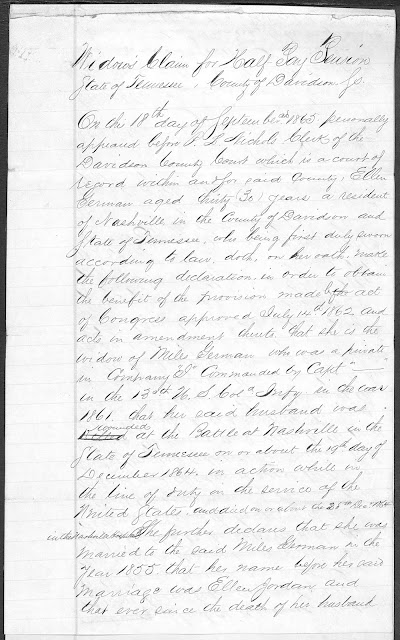 Widow's Claim for Half Pay Pension
State of Tennessee, County of Davidson Ss.
On the 18th day of September 1865 personally
appeared before P. L. Nichols Clerk of the
Davidson County Court which is a court of
record within and for said County, Ellen
German aged thirty (30) years a resident
of Nashville in the County of Davidson and
State of Tennessee, who being first duly sworn
according to law, doth, on her oath, make
the following declaration, in order to obtain
the benefit of the provision made by the act
of Congress approved July 14th 1862 and
acts in amendment thereto, that she is the
widow of Miles German who was a private
in Company "E" Commanded by Capt " —
in the 13th U. S. Col'd Infy. in the war
1861, that her said husband was
wounded
Killed at the Battle at Nashville in the
State of Tennessee on or about the 19th day of
December 1864, in action while in
the line of duty in the service of the
United States, and died on or about the 25th Dec 1864
in the
She further declares that she was
married to the said Miles German in the
Year 1855, that her name before her said
marriage was Ellen Jordan, and
that ever since the death of her husband